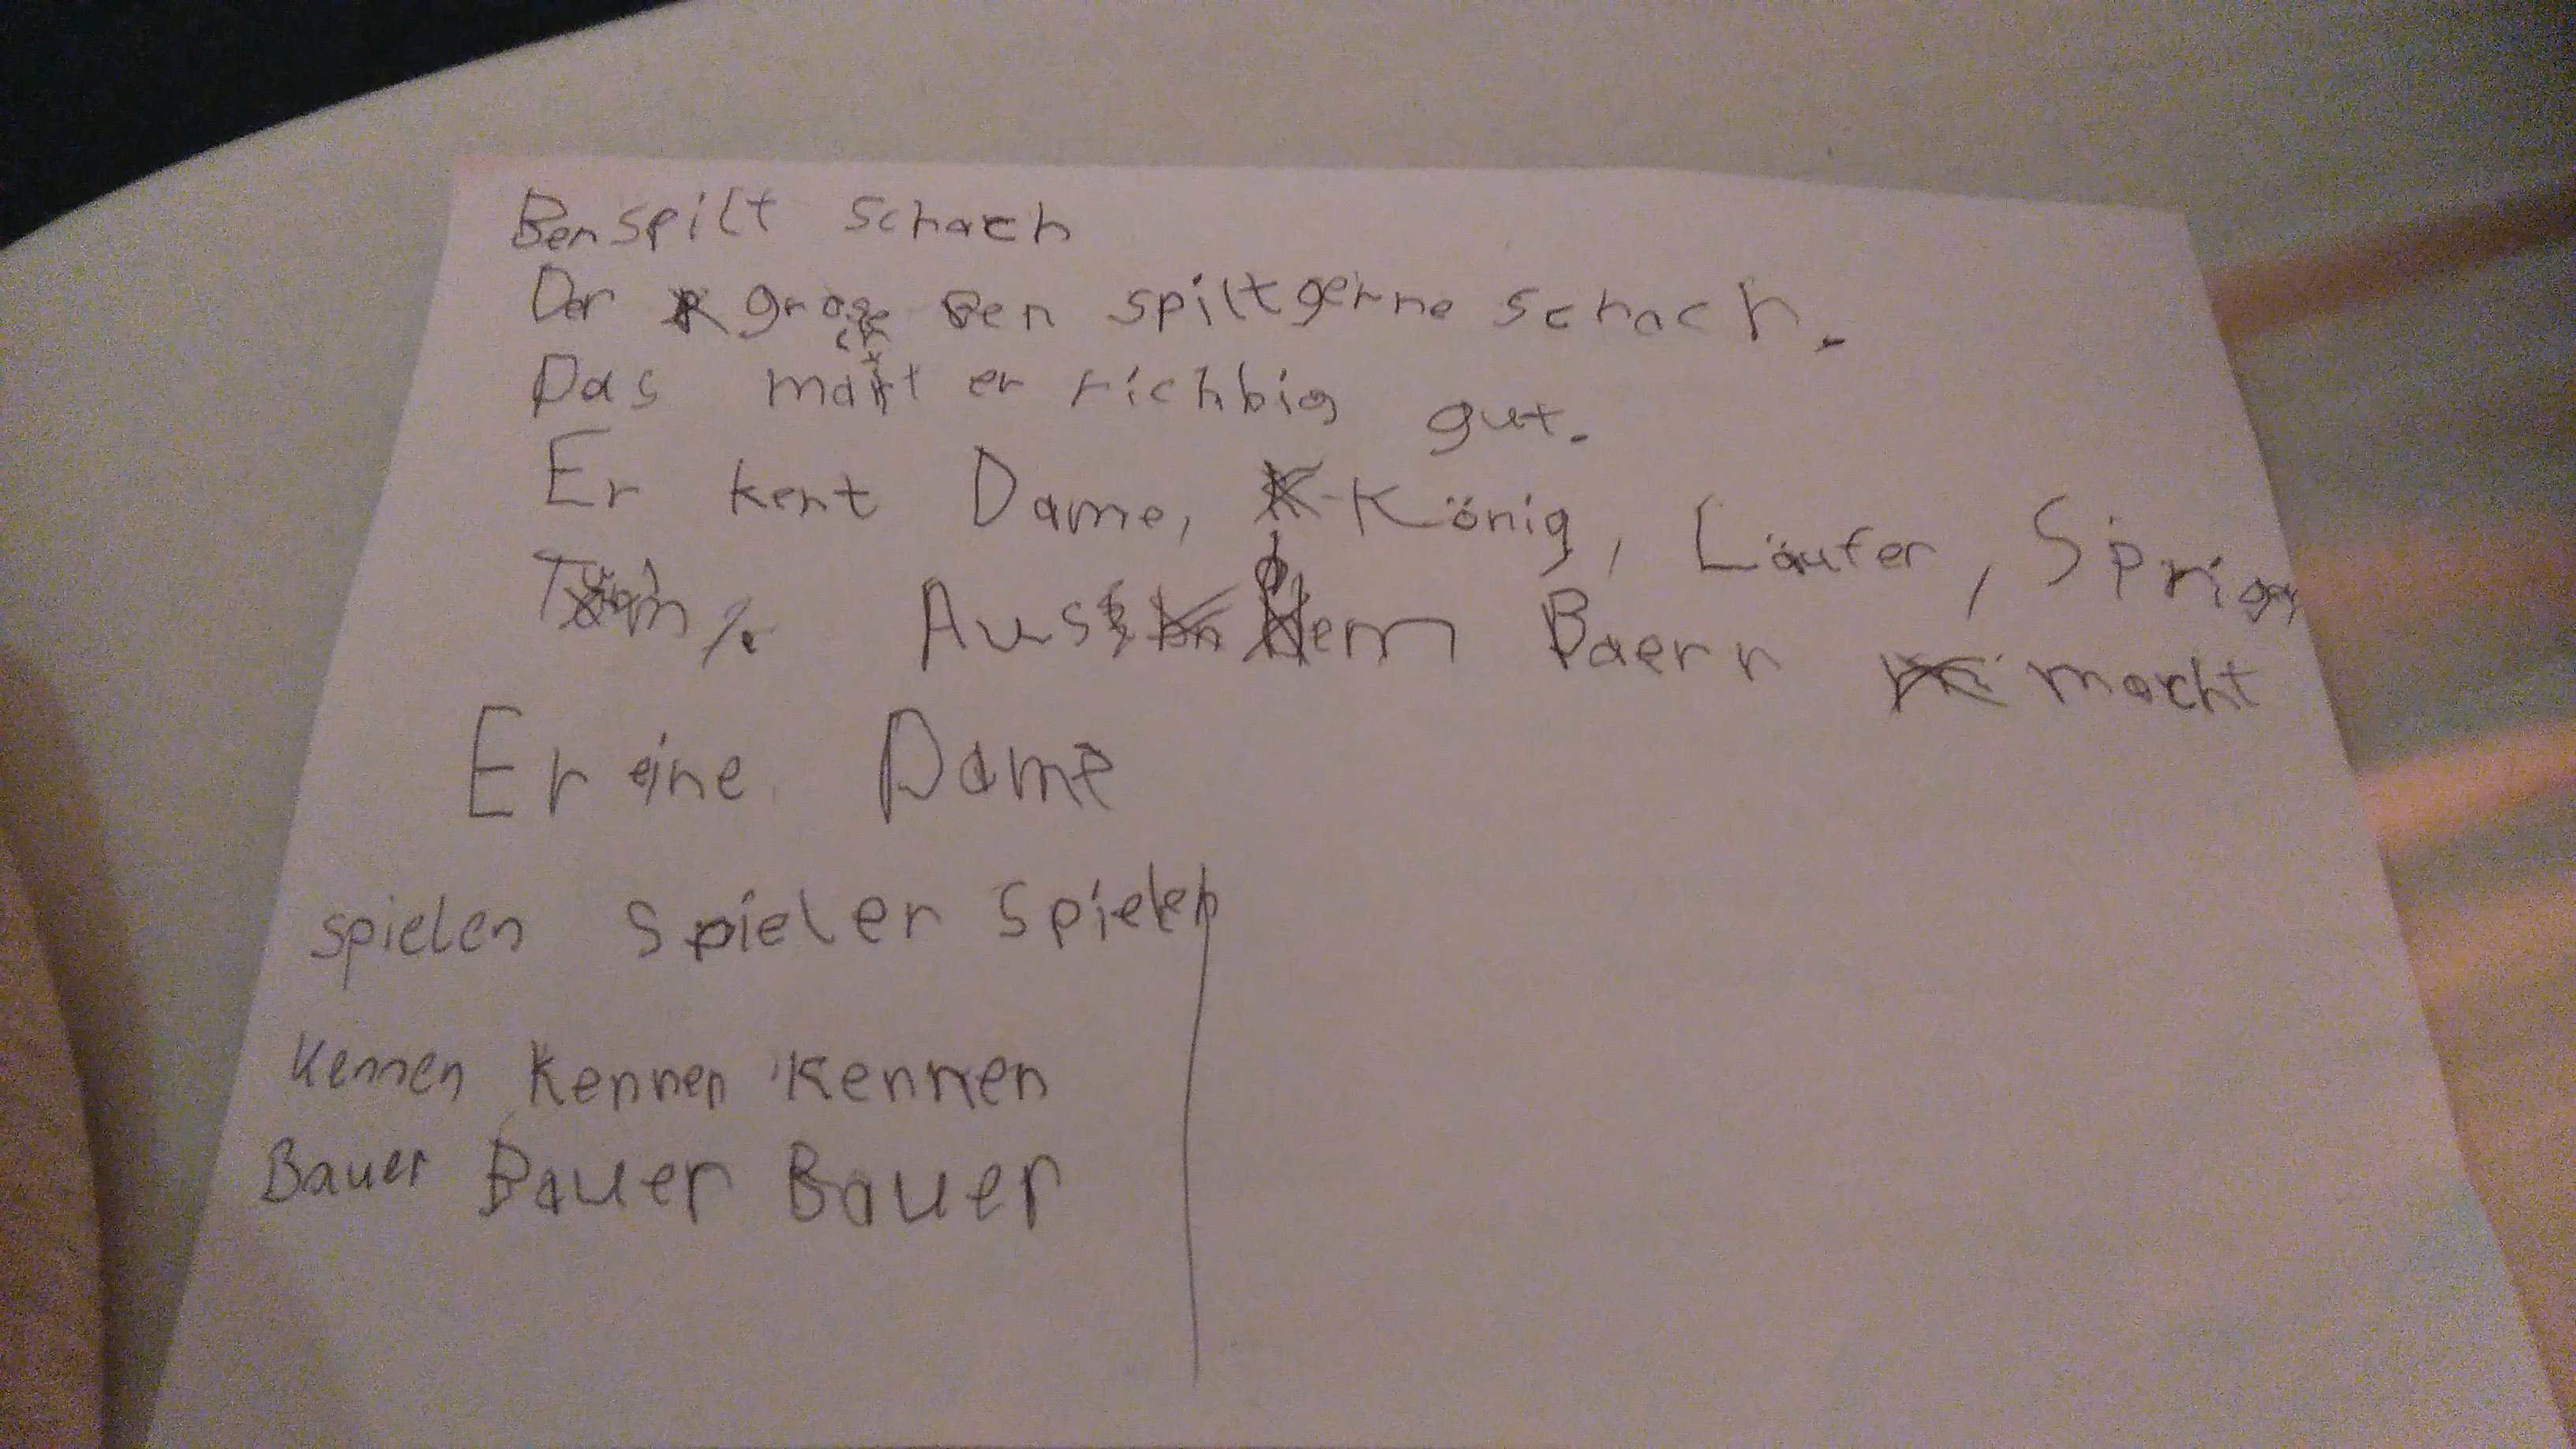 Ben spilt Schach
Der große Ben spilt gerne Schach.
Das macht er richtig gut.
Er kent Dame, König, Läufer,
Turm. Aus dem Baern macht
Er eine Dame
spielen Spieler Spielen
Kennen Kennen Kennen
Bauer Bauer Bauer